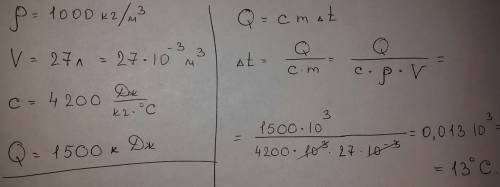 ρ = 1000 кг/м³
V = 27л = 27·10⁻³ м³
c = 4200 Дж/кг·°C
Q = 1500 к Дж
Q = c m Δt
Δt = Q/(c·m) = Q/(c·ρ·V) =
= 1500·10³/(4200·10³·27·10⁻³) = 0,013·10³ =
= 13°C.